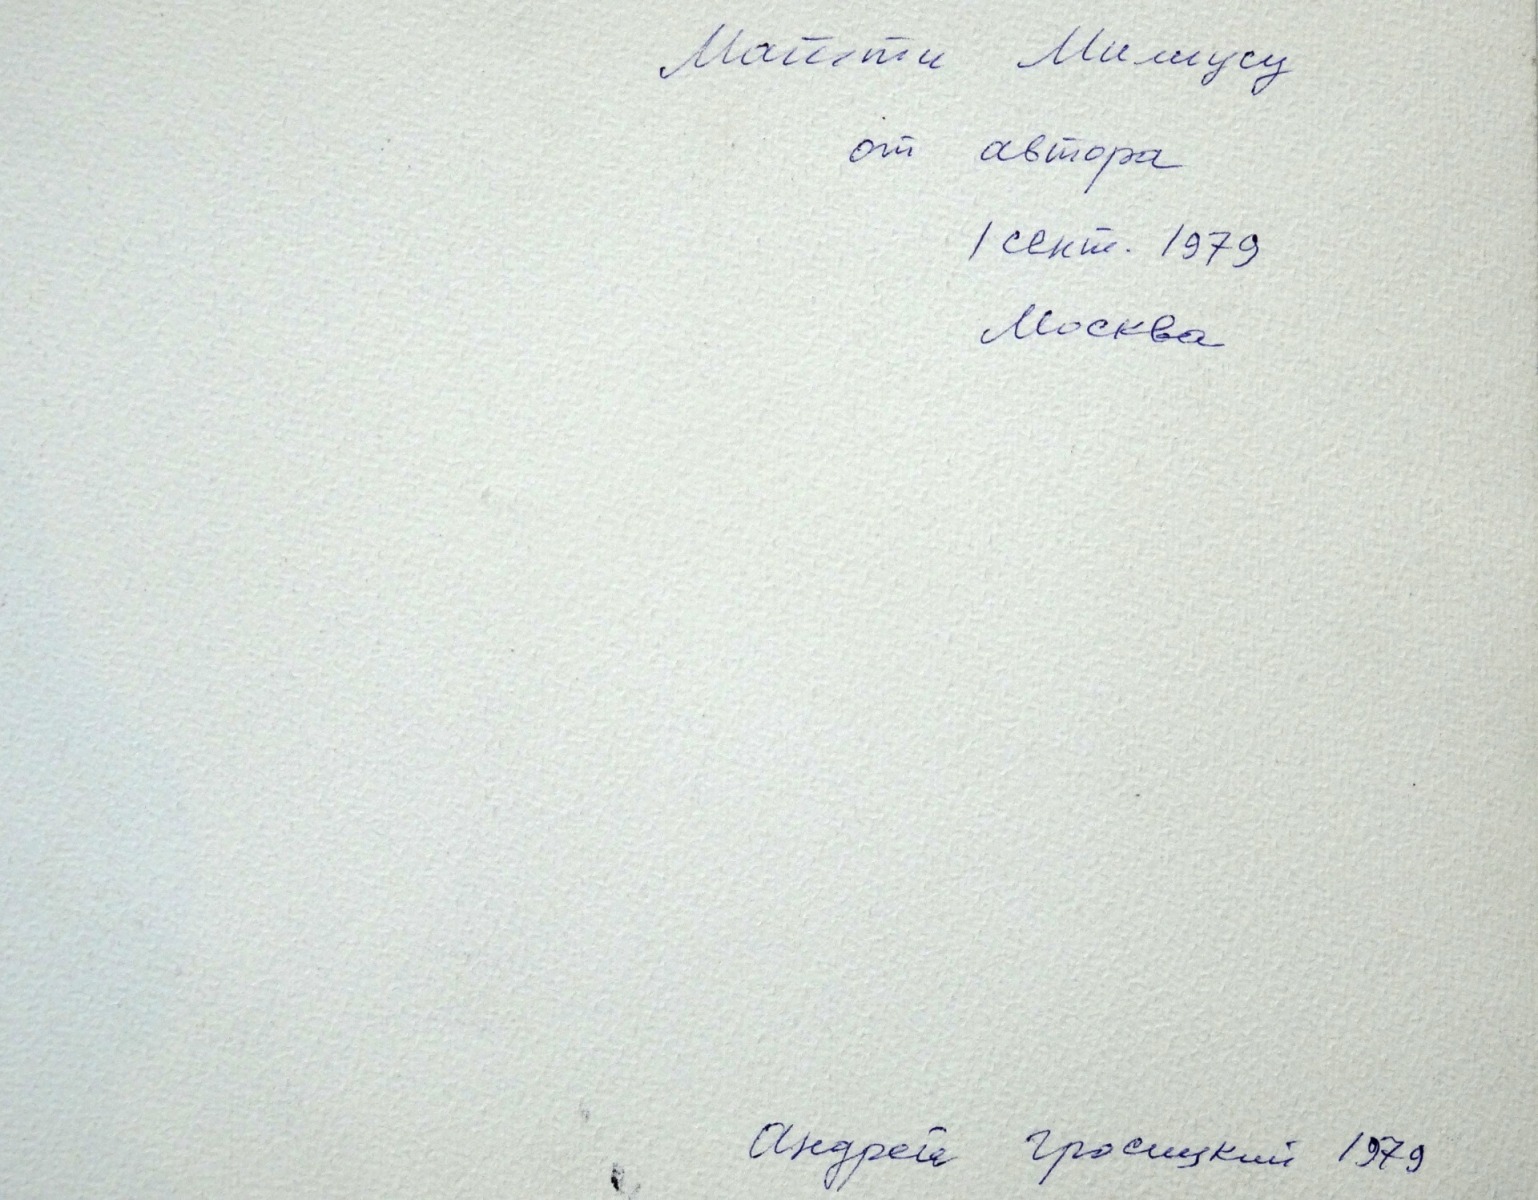 Матти Милиусу
от автора
1 сент. 1979
Москва
Андрей Гросицкий 1979